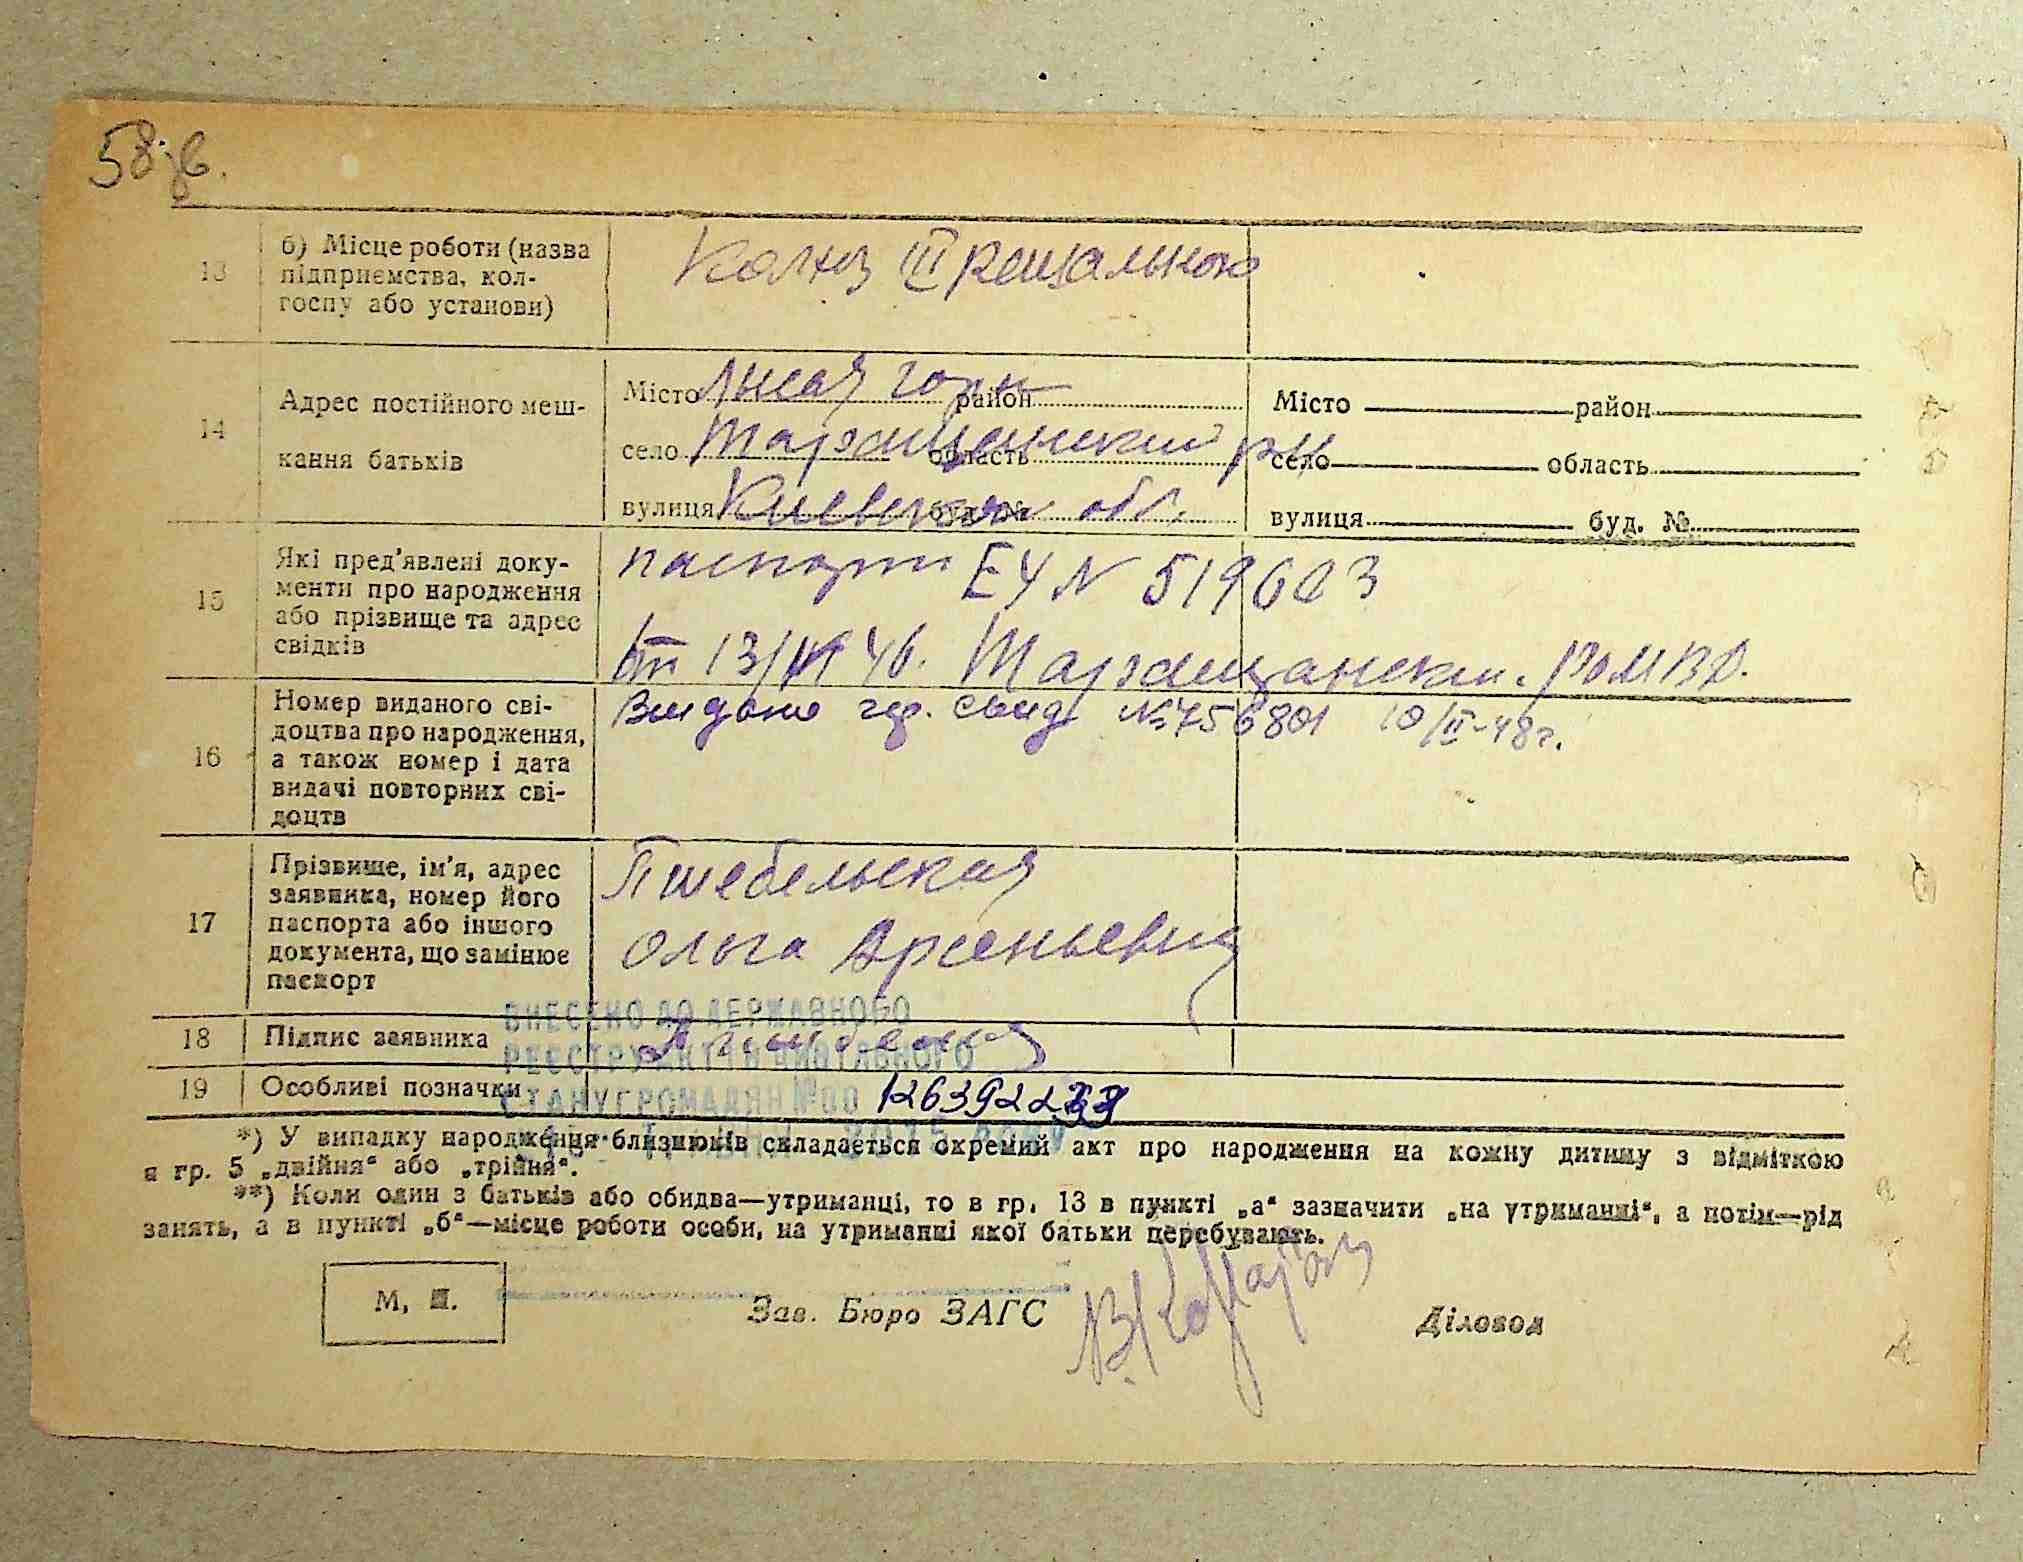 58 зв.
13
б) Місце роботи (назва
підприємства, кол-
госпу або установи)
Колхоз III Решального
14
Адрес постійного меш-
кання батьків
Місто Лысая гора район
село Таращанский рн область
вулиця Киевская обл. буд. №
Місто район
село область
вулиця буд. №
15
Які пред'явлені доку-
менти про народження
або прізвище та адрес
свідків
паспорт ЕУ N 519603
от 13/ 46. Таращанск. РОМВД.
16
Номер виданого сві-
доцтва про народження,
а також номер і дата
видачі повторних сві-
доцтв
Видано 756801 10/II-48г.
17
Прізвище, ім'я, адрес
заявника, номер його
паспорта або іншого
документа, що замінює
паспорт
Пшебельская
Ольга Арсеньевна
18
Підпис заявника
19
Особливі позначки
ВНЕСЕНО ДО ДЕРЖАВНОГО
РЕЄСТРУ АКТІВ ЦИВІЛЬНОГО
СТАНУ ГРОМАДЯН №00 1263922
*) У випадку народження близнюків складається окремий акт про народження на кожну дитину з відміткою
в гр. 5 „двійня“ або „трійня“.
**) Коли один з батьків або обидва—утриманці, то в гр. 13 в пункті „а“ зазначити „на утриманні“, а потім—рід
занять, а в пункті „б“—місце роботи особи, на утриманні якої батьки перебувають.
М, П.
Зав. Бюро ЗАГС
Діловод